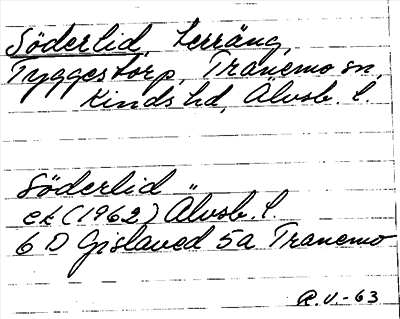 Söderlid, terräng,
Tyggestorp, Tranemo sn,
Kinds hd, Älvsb. l.
Söderlid
ek (1962) Älvsb. l.
6 D Gislaved 5a Tranemo
R.V.-63